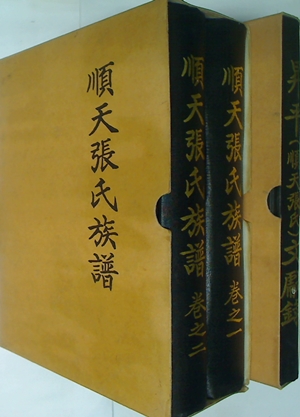 順天張氏族譜
順天張氏族譜 卷之二
順天張氏族譜 卷之一
昇平(順天張氏)文獻錄